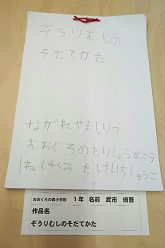 ぞうりむしの
そだてかた
ながれやましりつ
おおぐろのもりしょうがっこう
1ねん
たけいちしゅうご
おおぐろの森小学校 1年 名前 武市
作品名
ぞうりむしのそだてかた